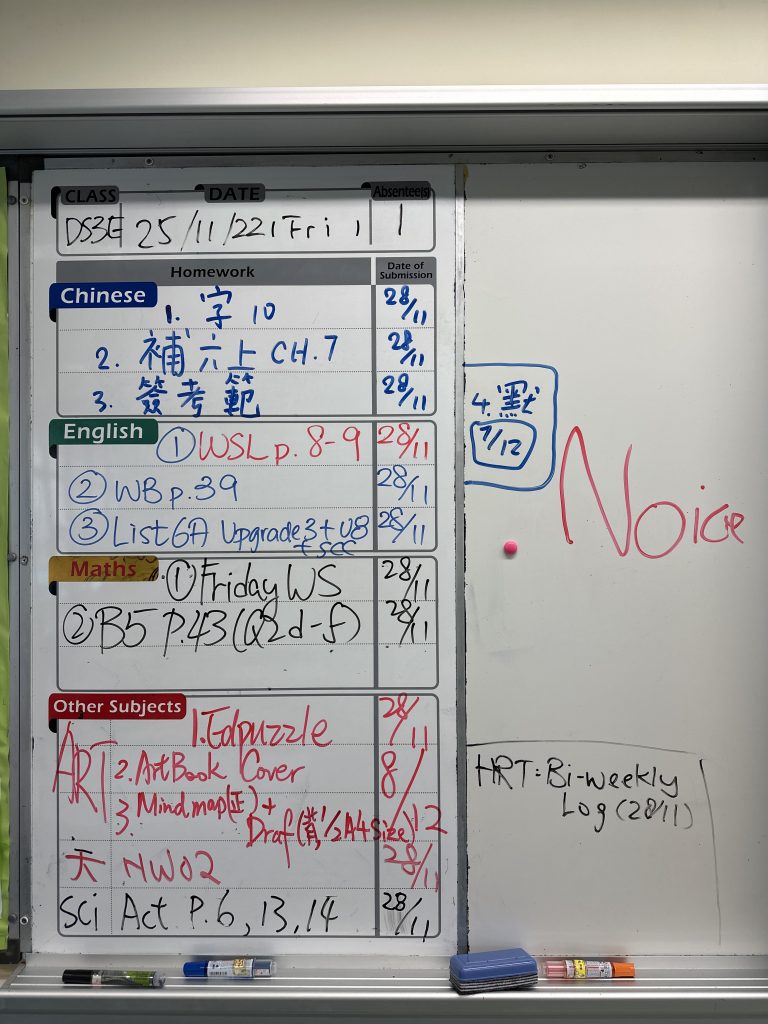 CLASS DATE Absentee(s)
DS3E 25/11/22(Fri) 1
Homework Date of Submission
Chinese
1. 字 10 28/11
2. 補 六上 CH.7 28/11
3. 簽考範 28/11
4. 默
7/12
English
① WSL p. 8-9 28/11
② WB p.39 28/11
③ List6A Upgrade3+U8 28/11
+SCC
Noice
Maths
① Friday WS 28/11
② B5 P.43(Q2d-f) 28/11
Other Subjects
1. Edpuzzle 28/11
ART 2. ArtBook Cover 8/12
3. Mindmap(正)+
Draf( 1/2 A4 size)
天 NW02 28/11
Sci Act P.6, 13, 14 28/11
HRT: Bi-weekly
Log (28/11)